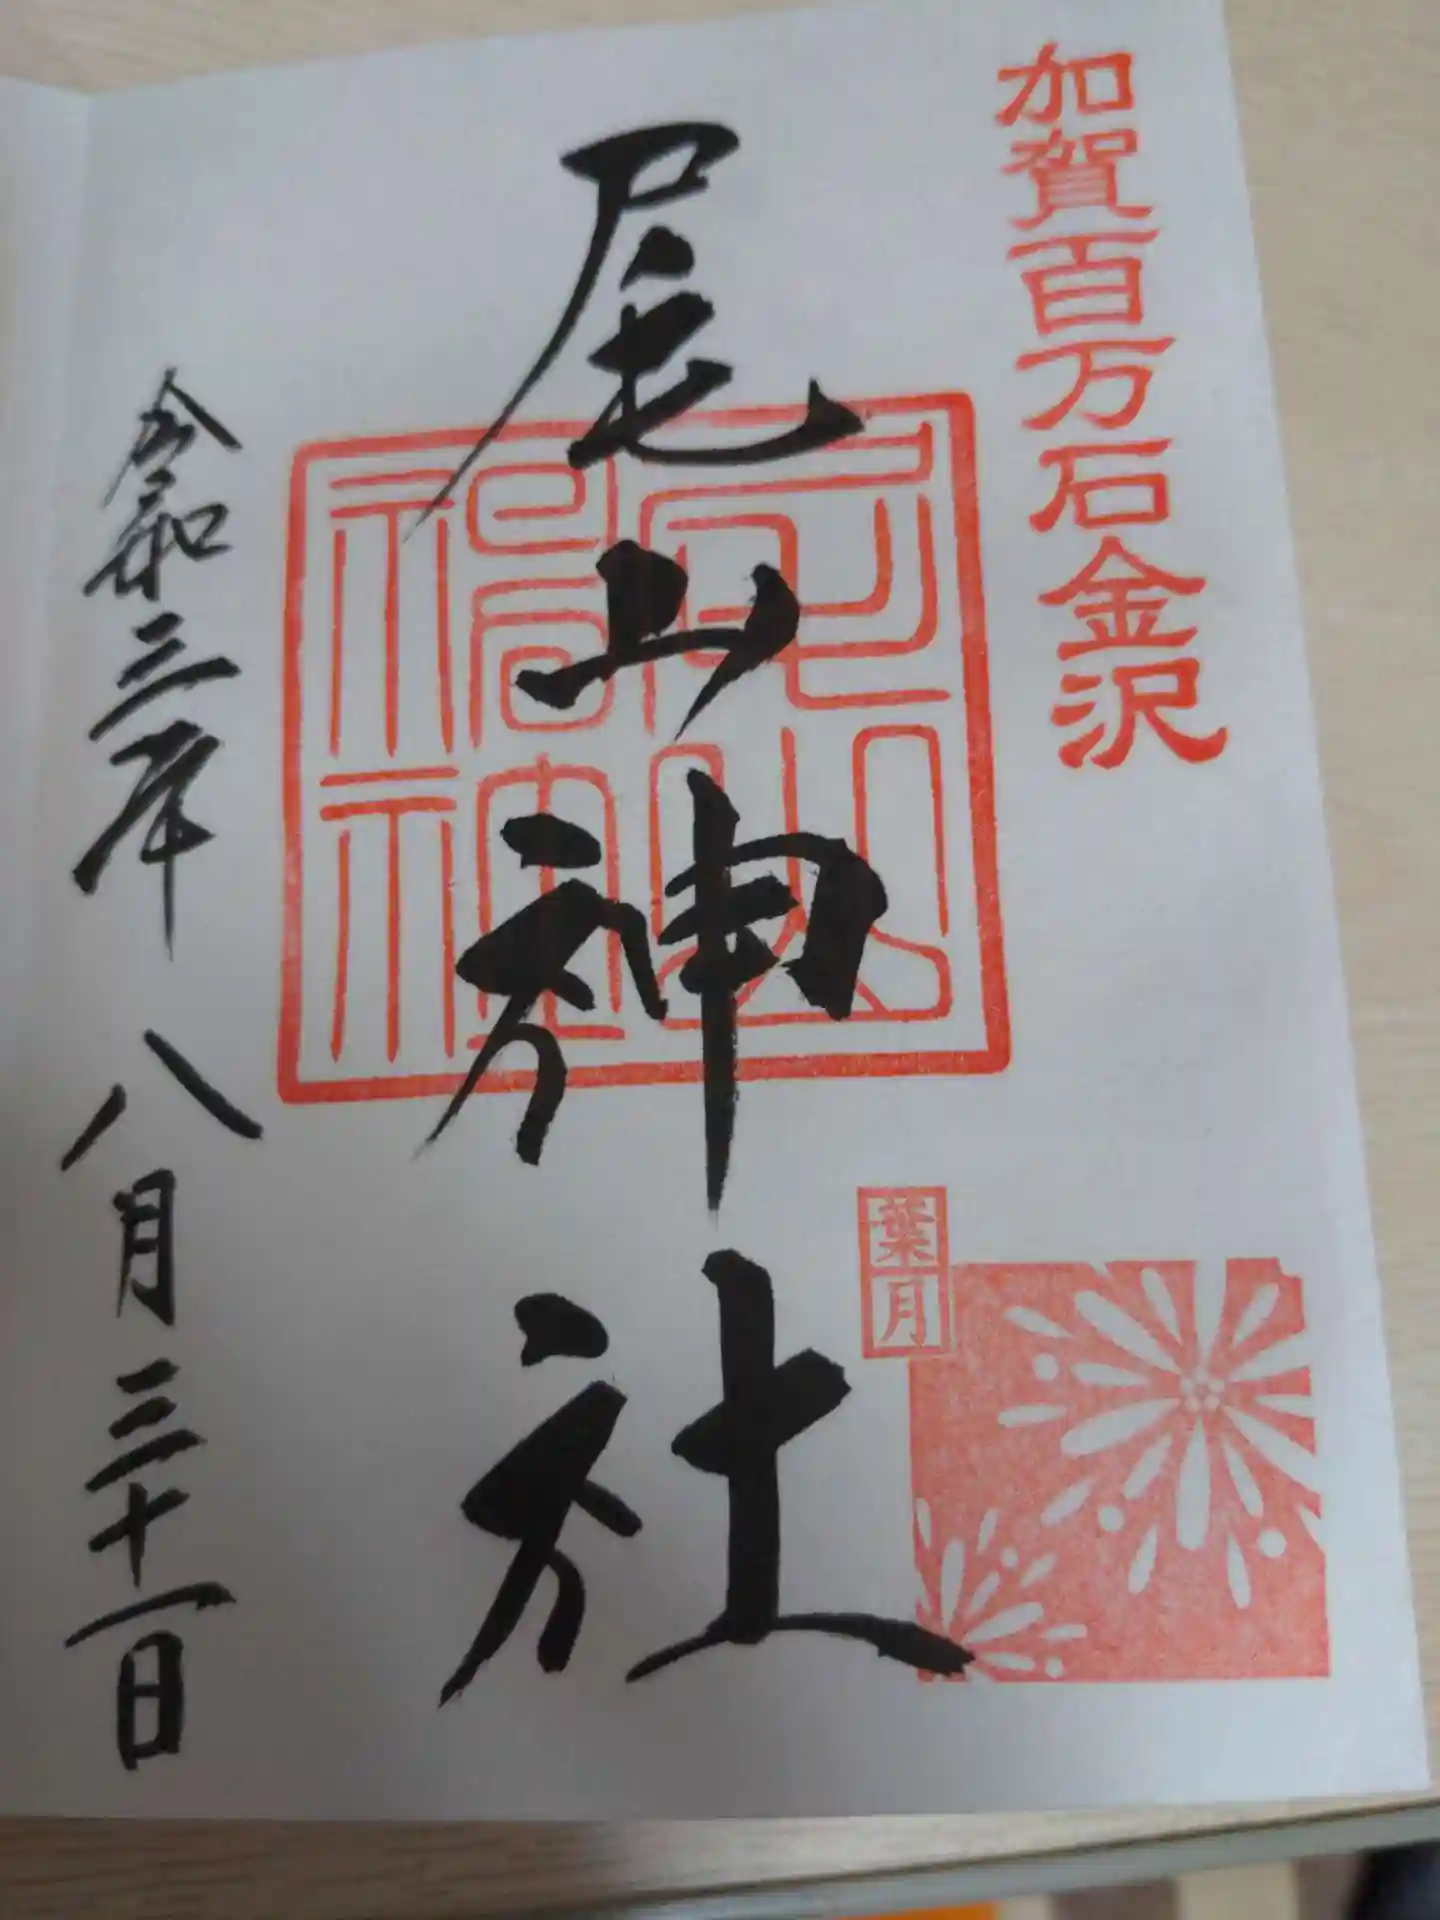 加賀百万石金沢
尾山神社
葉月
令和三年 八月三十一日